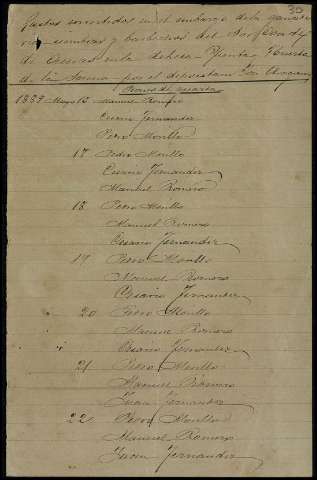 35
Gastos ocurridos en el embargo de la ganaderia
sembras y barbechos del
de en la dehesa
de la por el depositario
1883 Mayo 15 Manuel Romero
Cesario Fernandez
Pedro Morillo
17 Pedro Morillo
Cesario Fernandez
Manuel Romero
18 Pedro Morillo
Manuel Romero
Cesario Fernandez
19 Pedro Morillo
Manuel Romero
Cesario Fernandez
20 Pedro Morillo
Manuel Romero
Cesario Fernandez
21 Pedro Morillo
Manuel Romero
Juan Fernandez
22 Pedro Morillo
Manuel Romero
Juan Fernandez